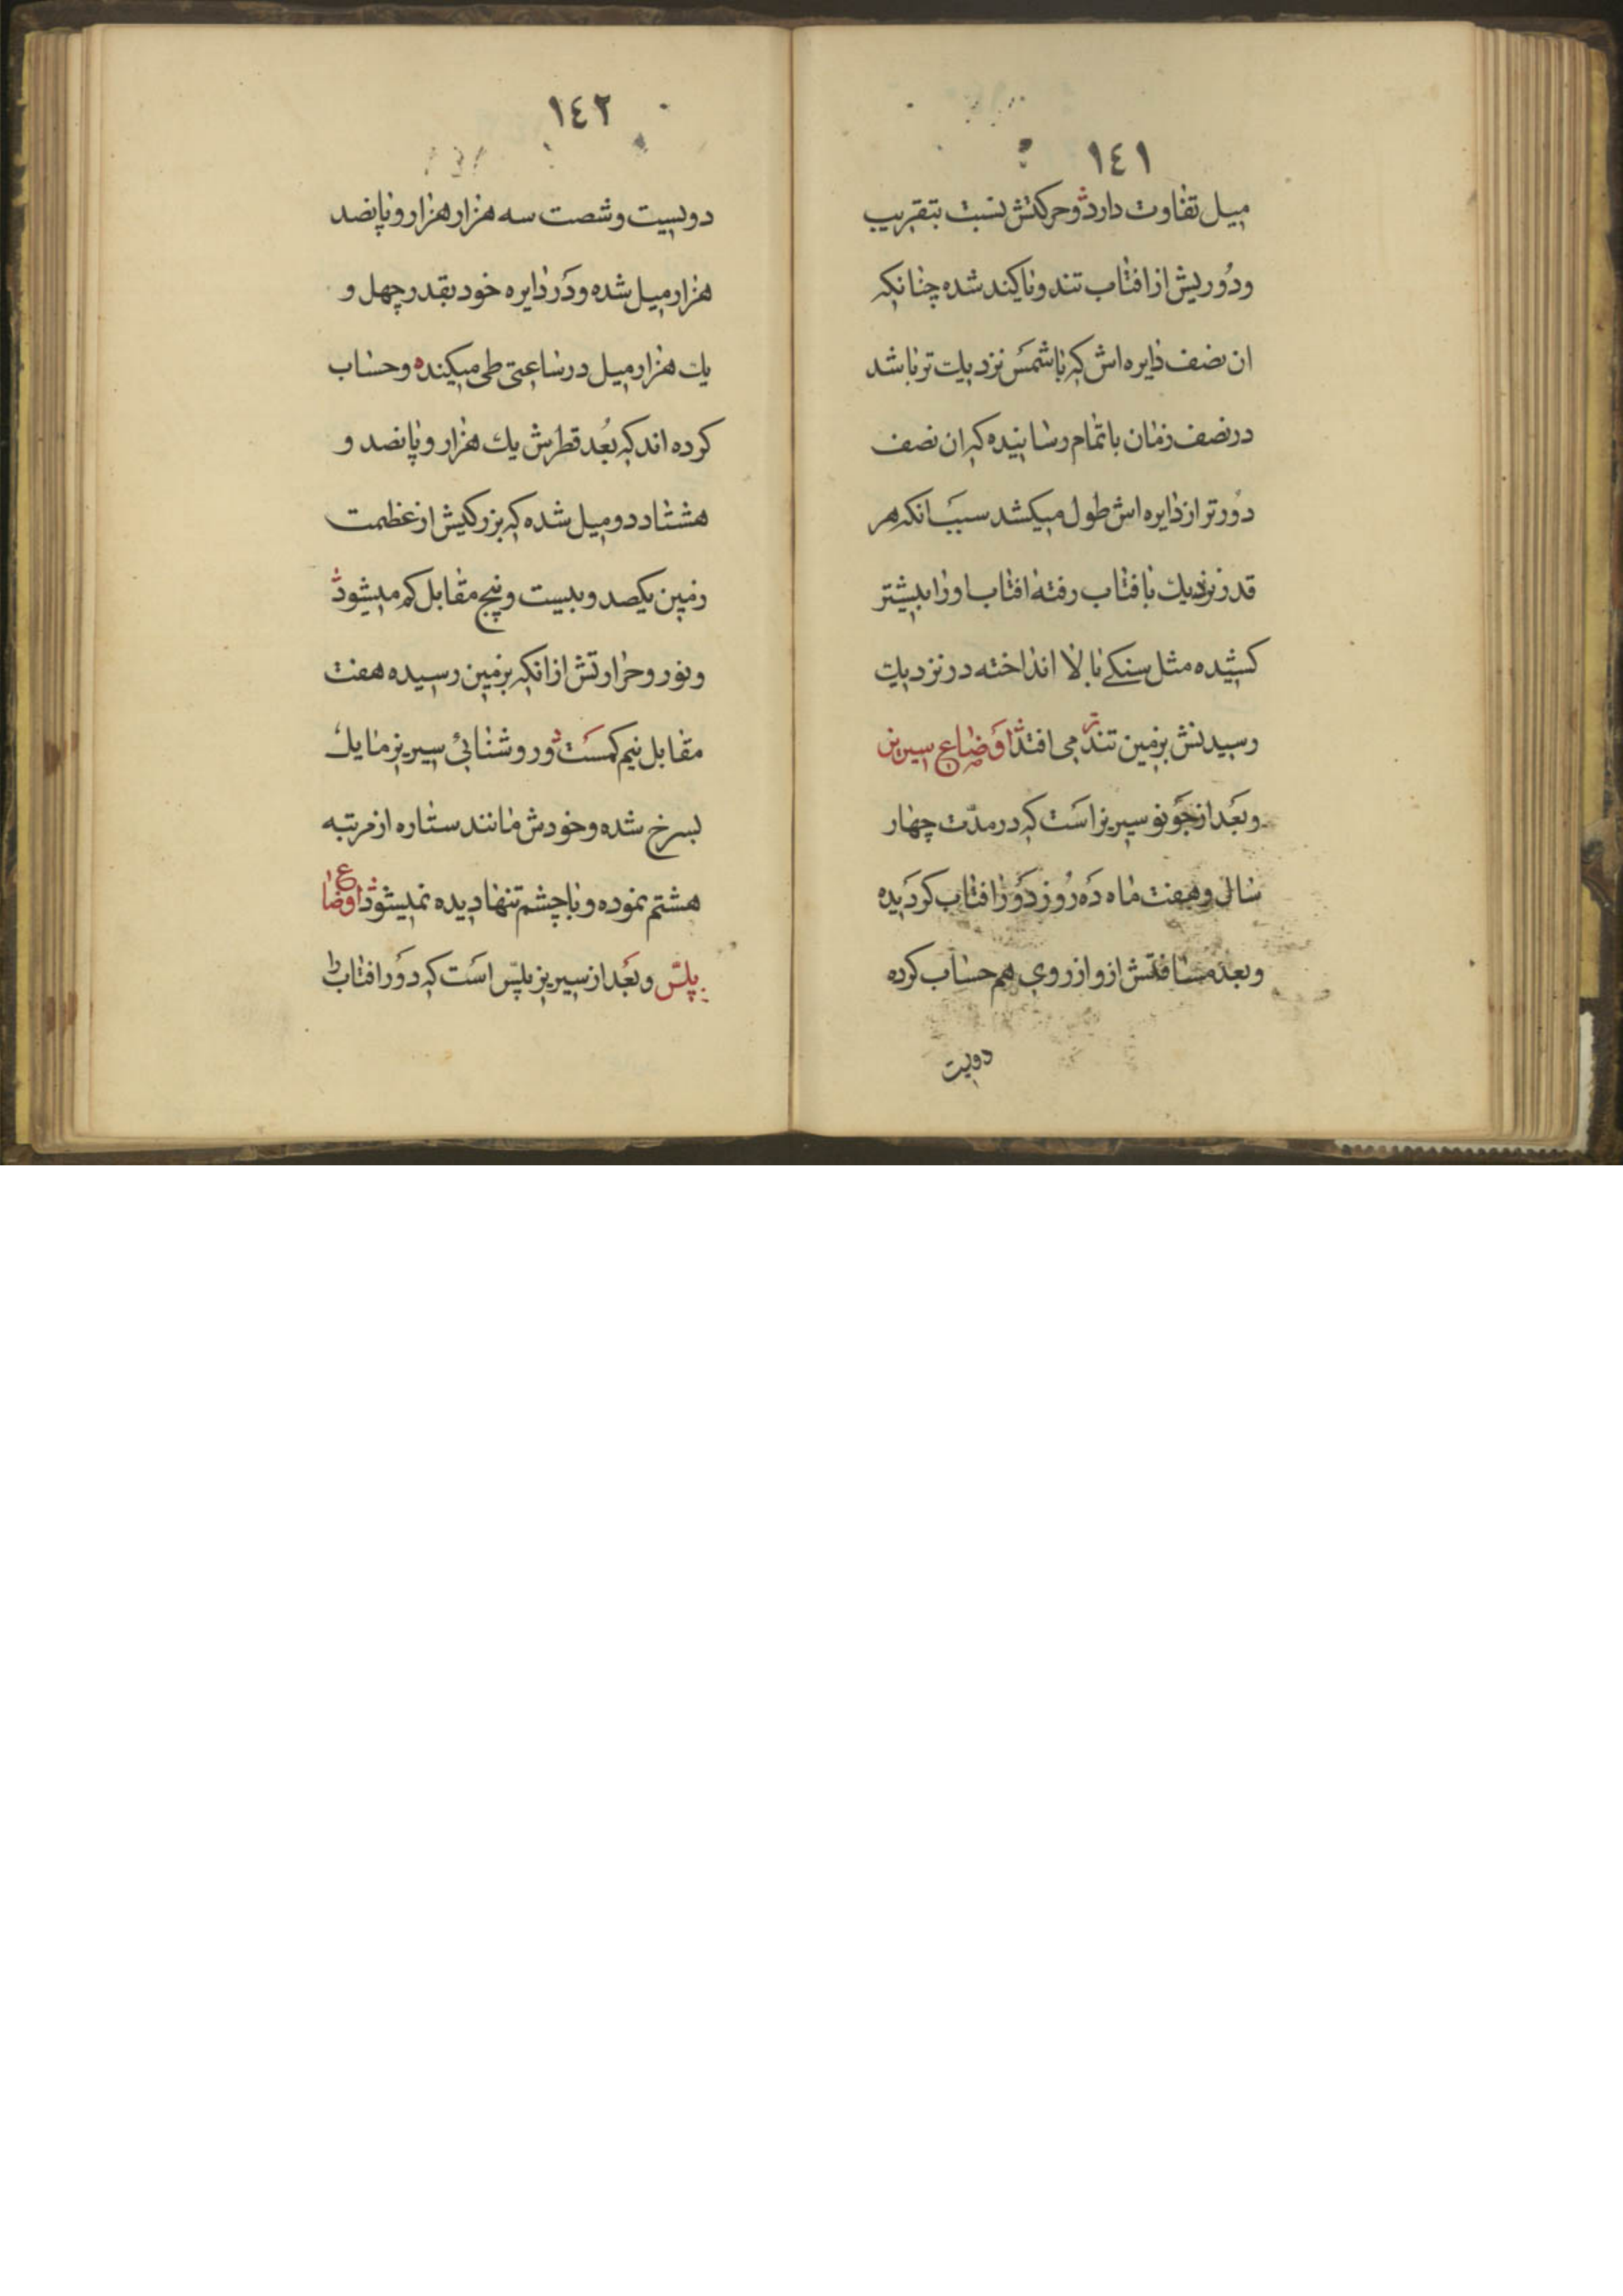 ١٤١
میل تفاوت دارد وحرکتش نسبت بتقریب
ودوریش از افتاب تند ویا کند شده چنانکه
ان نصف دایره اش که باشمس نزدیك تر باشد
در نصف زمان باتمام رسانیده که ان نصف
دورتر از دایره اش طول میکشد سبب انکه هر
قدر نزدیك با فتاب رفته افتاب اورا بیشتر
کشیده مثل سنکی بالا انداخته در نزدیك
رسیدنش بزمین تندتر می افتد اوضاع سیریز
وبعد از جونو سیریز است که در مدّت چهار
سال وهفت ماه ده روز دور افتاب کردیده
وبعد مسافتش ازو از روی هم حساب کرده
دویست
١٤٢
دویست وشصت سه هزار هزار وپانصد
هزار میل شده ودر دایره خود بقدر چهل و
یك هزار میل در ساعتی طی میکنده وحساب
کرده اند که بُعد قطرش یك هزار وپانصد و
هشتاد دو میل شده که بزرکیش از عظمت
زمین یکصد وبیست وپنج مقابل کم میشود
ونور وحرارتش از انکه بزمین رسیده هفت
مقابل نیم کمست وروشنائی سیریز مایل
بسرخ شده وخودش مانند ستاره از مرتبه
هشتم نموده وبا چشم تنها دیده نمیشود اوضاع
پلسّ وبعد از سیریز پلسّ است که دور افتاب را